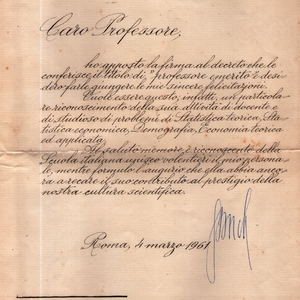 Caro Professore,
ho apposto la firma al decreto che le
conferisce il titolo di "professore emerito" e desi-
dero farle giungere le mie sincere felicitazioni.
Vuole essere questo, infatti, un particola-
re riconoscimento della sua attività di docente e
di studioso di problemi di Statistica teorica, Sta-
tistica economica, Demografia, Economia teorica
ed applicata.
Al saluto memore e riconoscente della
Scuola italiana unisco volentieri il mio persona-
le, mentre formulo l'augurio che ella abbia anco-
ra a recare il suo contributo al prestigio della
nostra cultura scientifica.
Roma, 4 marzo 1961